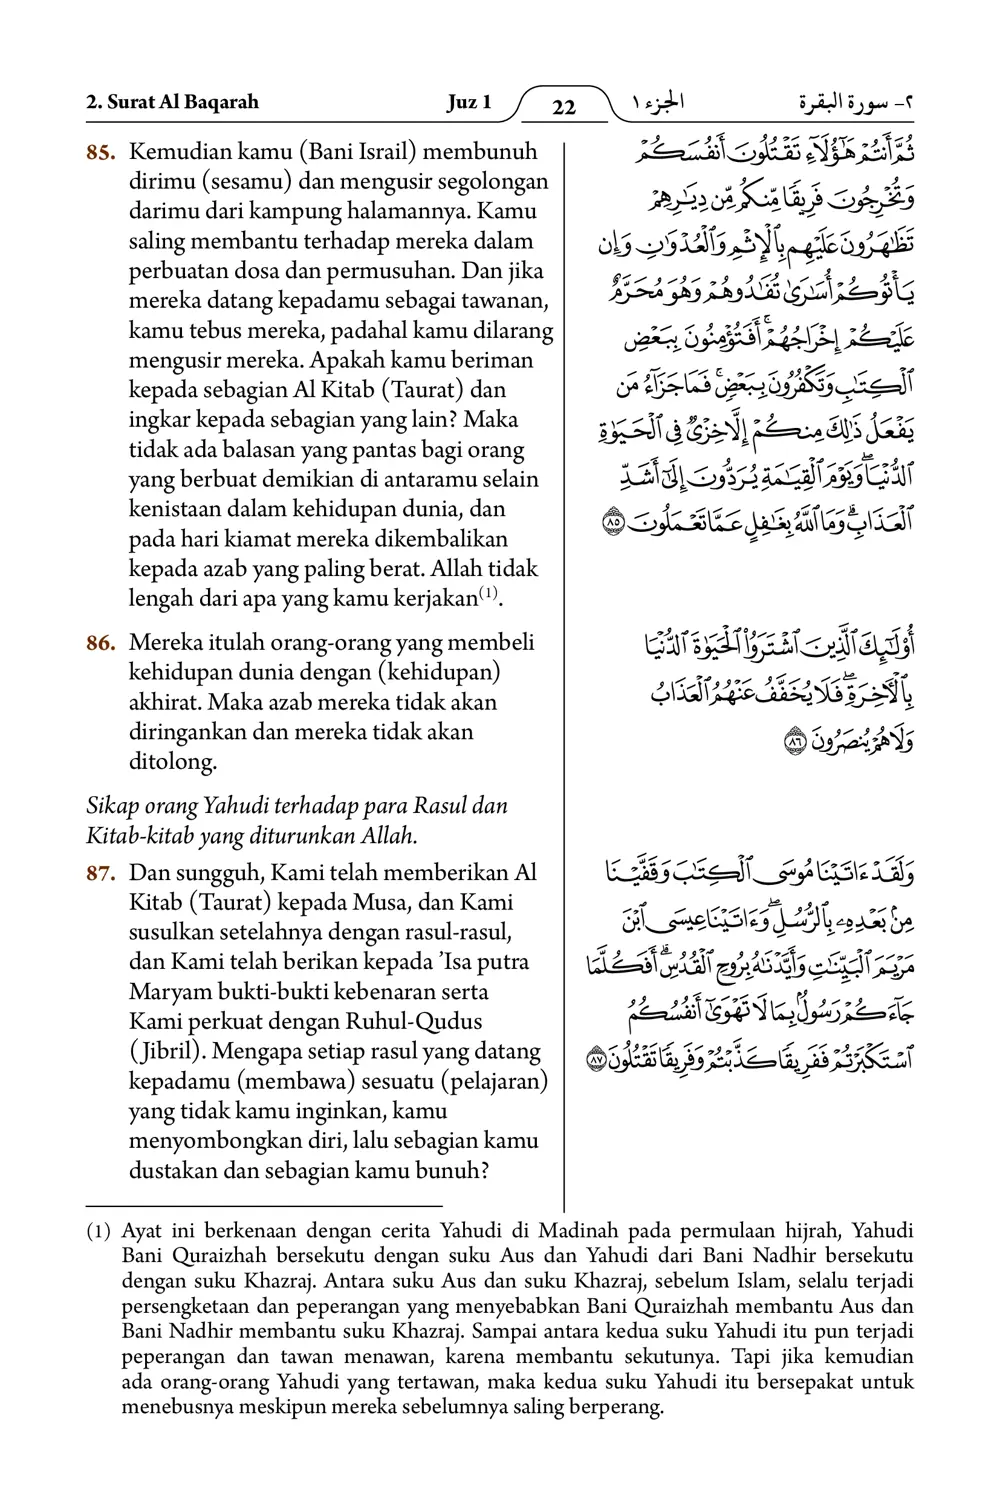 2. Surat Al Baqarah
Juz 1
22
الجزء ١
٢- سورة البقرة
85. Kemudian kamu (Bani Israil) membunuh
dirimu (sesamu) dan mengusir segolongan
darimu dari kampung halamannya. Kamu
saling membantu terhadap mereka dalam
perbuatan dosa dan permusuhan. Dan jika
mereka datang kepadamu sebagai tawanan,
kamu tebus mereka, padahal kamu dilarang
mengusir mereka. Apakah kamu beriman
kepada sebagian Al Kitab (Taurat) dan
ingkar kepada sebagian yang lain? Maka
tidak ada balasan yang pantas bagi orang
yang berbuat demikian di antaramu selain
kenistaan dalam kehidupan dunia, dan
pada hari kiamat mereka dikembalikan
kepada azab yang paling berat. Allah tidak
lengah dari apa yang kamu kerjakan(1).
ثُمَّ أَنتُمْ هَٰٓؤُلَآءِ تَقْتُلُونَ أَنفُسَكُمْ
وَتُخْرِجُونَ فَرِيقًا مِّنكُم مِّن دِيَٰرِهِمْ
تَظَٰهَرُونَ عَلَيْهِم بِٱلْإِثْمِ وَٱلْعُدْوَٰنِ وَإِن
يَأْتُوكُمْ أُسَٰرَىٰ تُفَٰدُوهُمْ وَهُوَ مُحَرَّمٌ
عَلَيْكُمْ إِخْرَاجُهُمْ ۚ أَفَتُؤْمِنُونَ بِبَعْضِ
ٱلْكِتَٰبِ وَتَكْفُرُونَ بِبَعْضٍ ۚ فَمَا جَزَآءُ مَن
يَفْعَلُ ذَٰلِكَ مِنكُمْ إِلَّا خِزْىٌ فِى ٱلْحَيَوٰةِ
ٱلدُّنْيَا ۖ وَيَوْمَ ٱلْقِيَٰمَةِ يُرَدُّونَ إِلَىٰٓ أَشَدِّ
ٱلْعَذَابِ ۗ وَمَا ٱللَّهُ بِغَٰفِلٍ عَمَّا تَعْمَلُونَ ٨٥
86. Mereka itulah orang-orang yang membeli
kehidupan dunia dengan (kehidupan)
akhirat. Maka azab mereka tidak akan
diringankan dan mereka tidak akan
ditolong.
أُو۟لَٰٓئِكَ ٱلَّذِينَ ٱشْتَرَوُا۟ ٱلْحَيَوٰةَ ٱلدُّنْيَا
بِٱلْءَاخِرَةِ ۖ فَلَا يُخَفَّفُ عَنْهُمُ ٱلْعَذَابُ
وَلَا هُمْ يُنصَرُونَ ٨٦
Sikap orang Yahudi terhadap para Rasul dan
Kitab-kitab yang diturunkan Allah.
87. Dan sungguh, Kami telah memberikan Al
Kitab (Taurat) kepada Musa, dan Kami
susulkan setelahnya dengan rasul-rasul,
dan Kami telah berikan kepada ’Isa putra
Maryam bukti-bukti kebenaran serta
Kami perkuat dengan Ruhul-Qudus
(Jibril). Mengapa setiap rasul yang datang
kepadamu (membawa) sesuatu (pelajaran)
yang tidak kamu inginkan, kamu
menyombongkan diri, lalu sebagian kamu
dustakan dan sebagian kamu bunuh?
وَلَقَدْ ءَاتَيْنَا مُوسَى ٱلْكِتَٰبَ وَقَفَّيْنَا
مِنۢ بَعْدِهِۦ بِٱلرُّسُلِ ۖ وَءَاتَيْنَا عِيسَى ٱبْنَ
مَرْيَمَ ٱلْبَيِّنَٰتِ وَأَيَّدْنَٰهُ بِرُوحِ ٱلْقُدُسِ ۗ أَفَكُلَّمَا
جَآءَكُمْ رَسُولٌۢ بِمَا لَا تَهْوَىٰٓ أَنفُسُكُمُ
ٱسْتَكْبَرْتُمْ فَفَرِيقًا كَذَّبْتُمْ وَفَرِيقًا تَقْتُلُونَ ٨٧
(1) Ayat ini berkenaan dengan cerita Yahudi di Madinah pada permulaan hijrah, Yahudi
Bani Quraizhah bersekutu dengan suku Aus dan Yahudi dari Bani Nadhir bersekutu
dengan suku Khazraj. Antara suku Aus dan suku Khazraj, sebelum Islam, selalu terjadi
persengketaan dan peperangan yang menyebabkan Bani Quraizhah membantu Aus dan
Bani Nadhir membantu suku Khazraj. Sampai antara kedua suku Yahudi itu pun terjadi
peperangan dan tawan menawan, karena membantu sekutunya. Tapi jika kemudian
ada orang-orang Yahudi yang tertawan, maka kedua suku Yahudi itu bersepakat untuk
menebusnya meskipun mereka sebelumnya saling berperang.